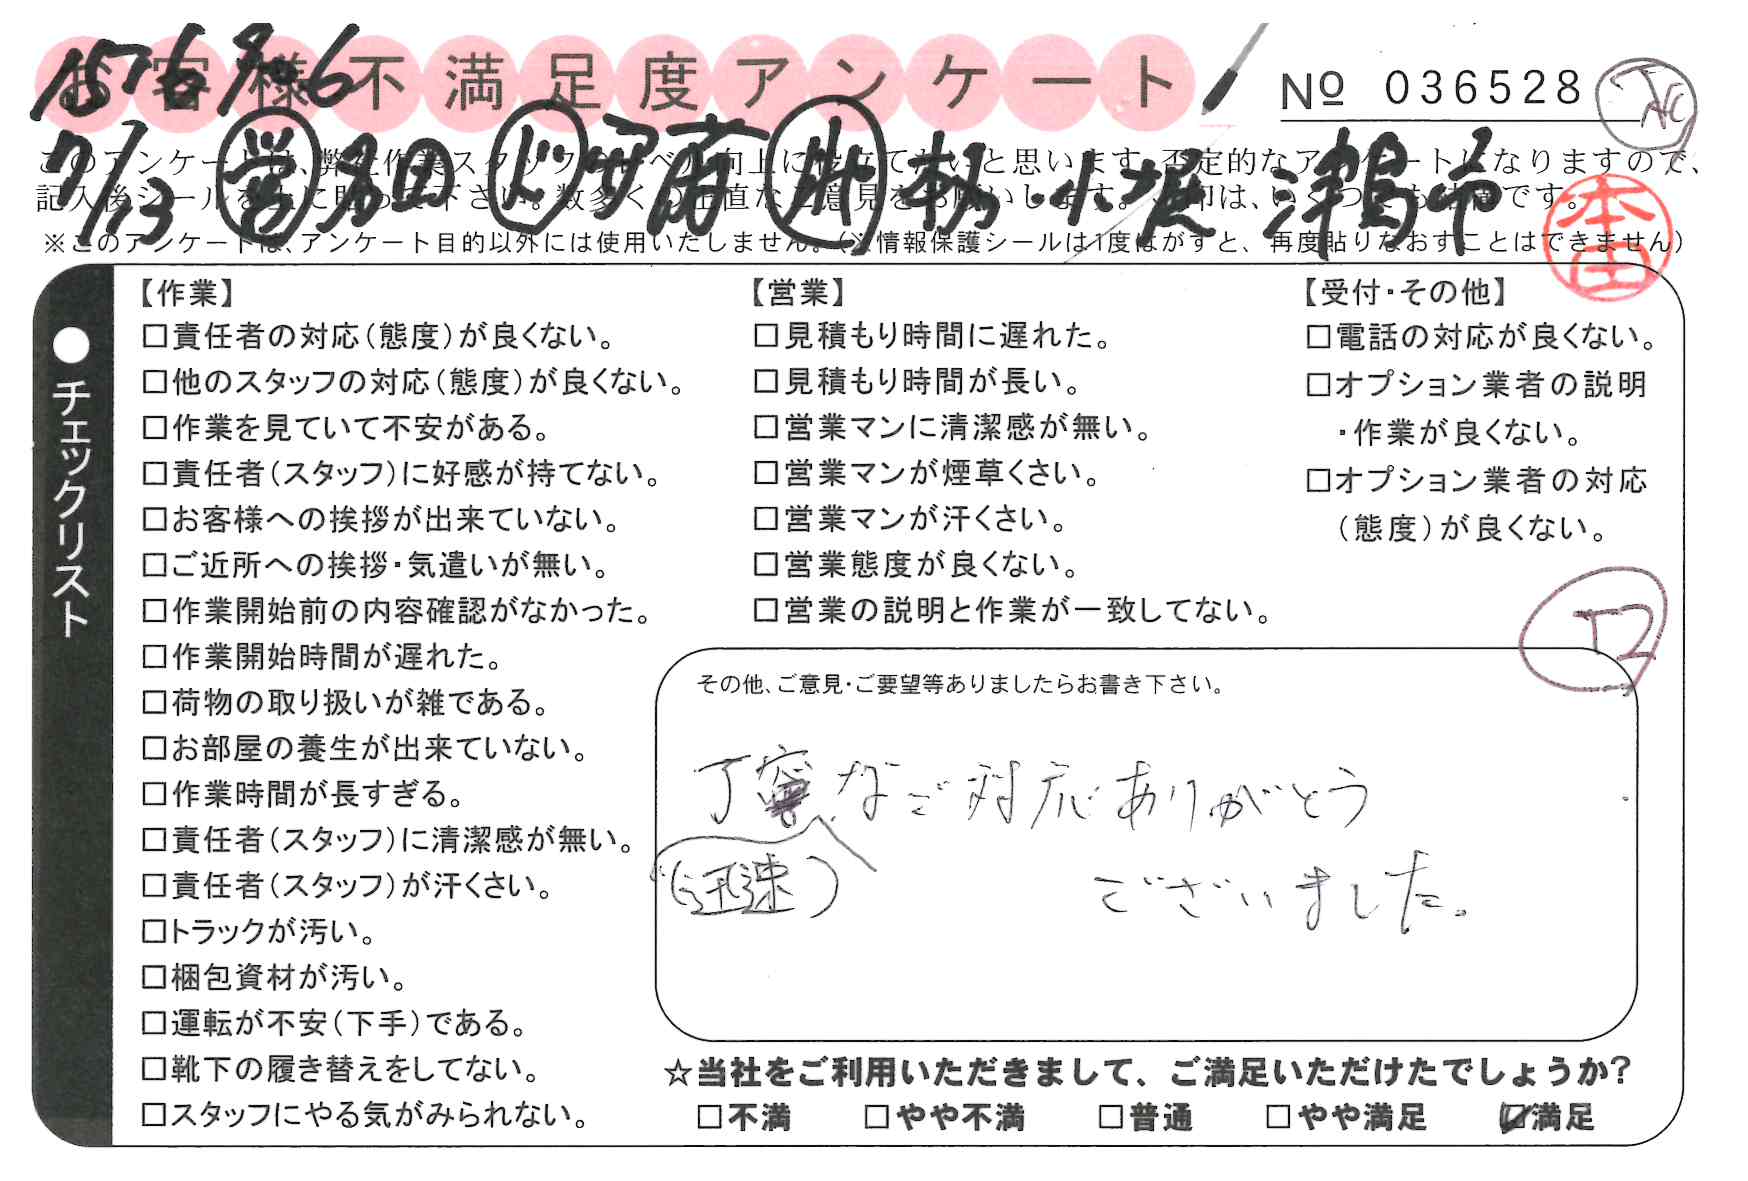 お客様不満足度アンケート
No 036528
7/13 営 多田 ド 伊藤 サ 本郷・小堀 津島市
このアンケートは、弊社作業スタッフのレベル向上に役立てたいと思います。否定的なアンケートになりますので、
記入後シールを上に貼って下さい。数多くの正直なご意見をお願いします。レ印は、いくつでも結構です。
※このアンケートは、アンケート目的以外には使用いたしません。(※情報保護シールは1度はがすと、再度貼りなおすことはできません)
●チェックリスト
【作業】
□責任者の対応(態度)が良くない。
□他のスタッフの対応(態度)が良くない。
□作業を見ていて不安がある。
□責任者(スタッフ)に好感が持てない。
□お客様への挨拶が出来ていない。
□ご近所への挨拶・気遣いが無い。
□作業開始前の内容確認がなかった。
□作業開始時間が遅れた。
□荷物の取り扱いが雑である。
□お部屋の養生が出来ていない。
□作業時間が長すぎる。
□責任者(スタッフ)に清潔感が無い。
□責任者(スタッフ)が汗くさい。
□トラックが汚い。
□梱包資材が汚い。
□運転が不安(下手)である。
□靴下の履き替えをしてない。
□スタッフにやる気がみられない。
【営業】
□見積もり時間に遅れた。
□見積もり時間が長い。
□営業マンに清潔感が無い。
□営業マンが煙草くさい。
□営業マンが汗くさい。
□営業態度が良くない。
□営業の説明と作業が一致してない。
【受付・その他】
□電話の対応が良くない。
□オプション業者の説明
・作業が良くない。
□オプション業者の対応
(態度)が良くない。
その他、ご意見・ご要望等ありましたらお書き下さい。
丁寧なご対応ありがとう
(迅速)
ございました。
☆当社をご利用いただきまして、ご満足いただけたでしょうか?
□不満 □やや不満 □普通 □やや満足 ☑満足